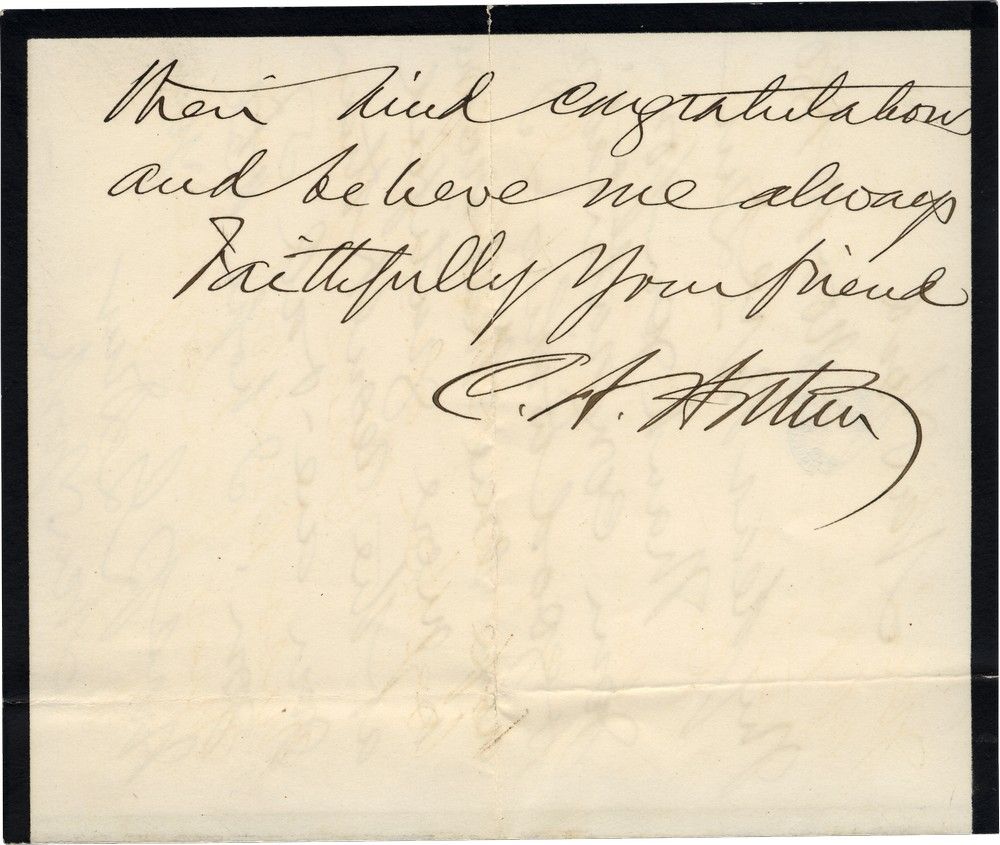 their kind congratulations
and believe me always
Faithfully your friend
C. A. Arthur